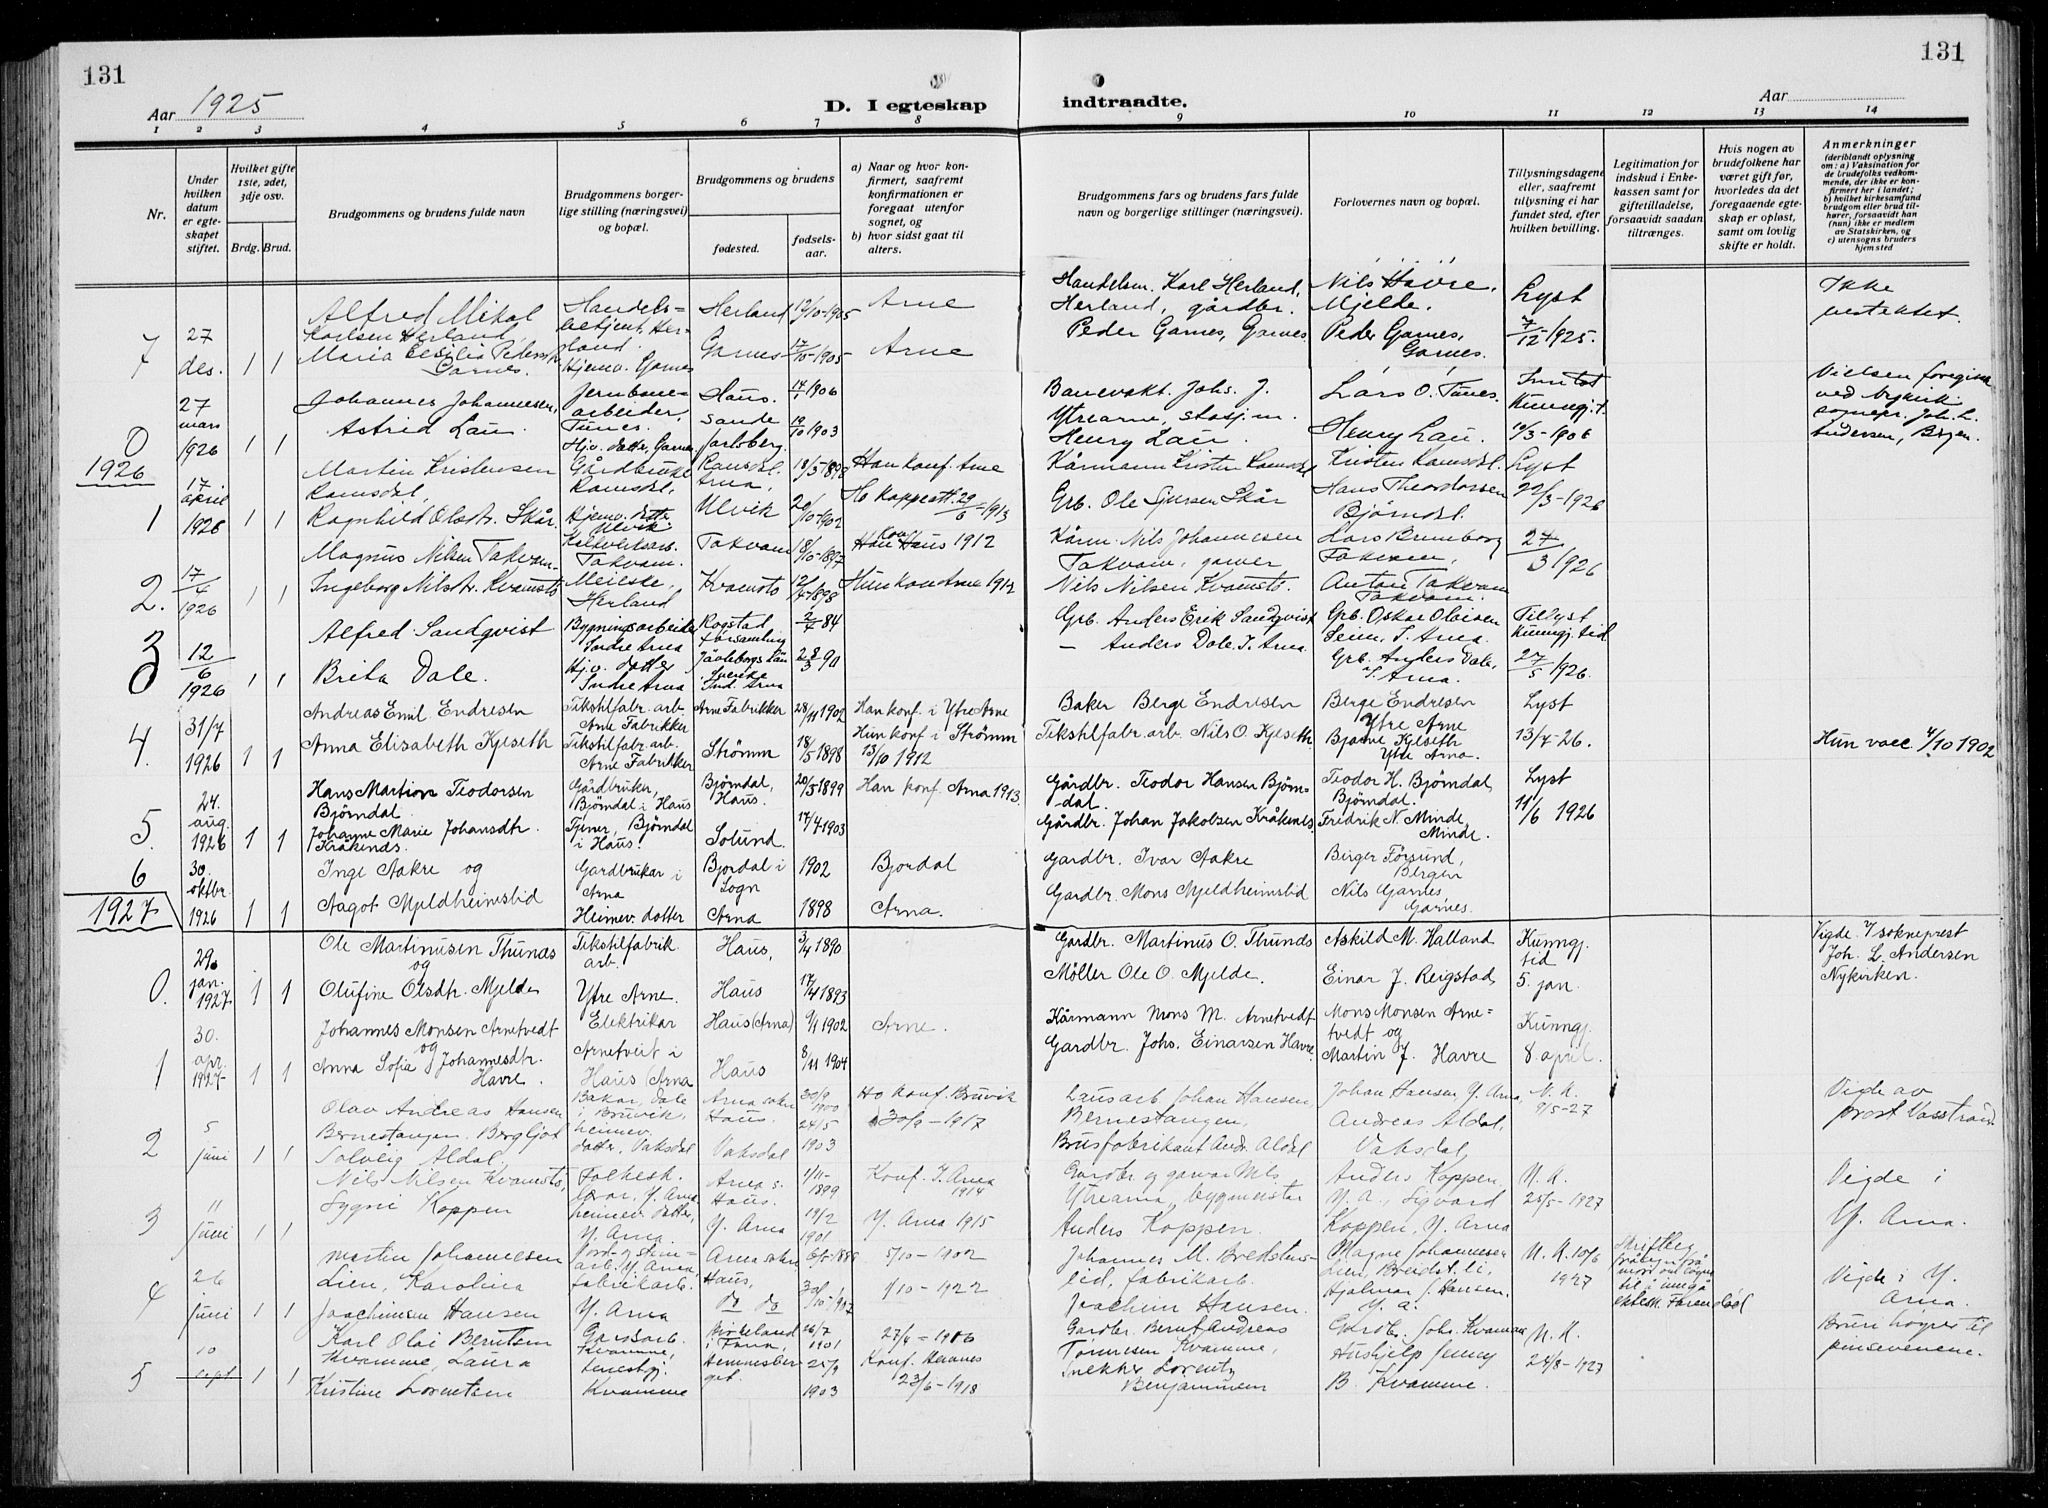 131
131
Aar 1925
D. I egteskap
indtraadte.
Aar
1 2 3 4 5 6 7 8 9 10 11 12 13 14
Nr.
Under hvilken datum er egteskapet stiftet.
Hvilket gifte 1ste, 2det, 3dje osv.
Brdg. Brud.
Brudgommens og brudens fulde navn
Brudgommens borgerlige stilling (næringsvei) og bopæl.
Brudgommens og brudens
fødested.
fødselsaar.
a) Naar og hvor konfirmert, saafremt konfirmationen er foregaat utenfor sognet, og
b) hvor sidst gaat til alters.
Brudgommens fars og brudens fars fulde navn og borgerlige stillinger (næringsvei).
Forlovernes navn og bopæl.
Tillysningsdagene eller, saafremt tillysning ei har fundet sted, efter hvilken bevilling.
Legitimation for indskud i Enkekassen samt for giftetilladelse, forsaavidt saadan tiltrænges.
Hvis nogen av brudefolkene har været gift før, hvorledes da det foregaaende egteskap er opløst, samt om lovlig skifte er holdt.
Anmerkninger
(deriblandt oplysning om: a) Vaksination for de brudefolks vedkommende, der ikke er konfirmert her i landet; b) hvilket kirkesamfund brudgom eller brud tilhører, forsaavidt han (hun) ikke er medlem av Statskirken, og c) utensogns bruders hjemsted
7 27 des. 1 1
Alfred Mikal Karlsen Herland
Handelsbetjent, Herland.
Herland 12/10-1905 Arne
Handelsm. Karl Herland, Herland, gårdbr.
Nils Havre, Mjelde.
Lyst 7/12 1925.
Ikke
Maria Cecilia Pedersdtr. Garnes.
Hjemv. Garnes
Garnes 1905 Arne
Peder Garnes, Garnes
Peder Garnes, Garnes.
0 27 mars 1926 1 1
Johannes Johannesen,
Jernbanearbeider, Tunes.
Haus. 14/1 1906
Banevakt. Johs. J. Ytrearne, stasjon.
Lars O. Tunes.
Kunngj. t. 10/3-1906
Vielsen foregik ved Nykirk. sognepr. Joh. L. Andersen, Bergen.
Astrid Lau.
Hjv. datter, Garnes
Sande Jarlsberg. 1903
Henry Lau.
Henry Lau.
1926
1 17 april 1926 1 1
Martin Kristensen Ramsdal,
Gårdbruker Ramsdal,
Ramsdal. Arna.
Han konf. Arne
Kårmann Kristen Ramsdal
Kristen Ramsdal.
Lyst 22/3-1926
Ragnhild Olsdtr. Skår.
Ulvik
Ulvik 1902
Grb. Ole Sjursen Skår
Hans Theodorsen Bjørndal.
2. 17/4 1926 1 1
Magnus Nilsen Takvam
Takvam.
Takvam 18/10-1897
Haus 1912
Kårm. Nils Johannesen Takvam, garver
Takvam,
27/3 1926
Ingeborg Nilsdtr. Kvamsto
Meieske, Herland
Kvamsto 12/4-1898
Hun kon Arne 1912
Nils Nilsen Kvamsto.
Anton Takvam Takvam.
3 12/6 1926 1 1
Alfred Sandqvist
Bygningsarbeider Indre Arna
Rogstad församling Jävleborgs län Sverike 2/7 84
Grb. Anders Erik Sandqvist
Grb. Oskar Olaisen Seim, I. Arna.
Tillyst Kunngj. tid 27/5 1926.
Brita Dale.
Hjv. datter Indre Arna
Ind. Arna 28/3 90
— Anders Dale. I. Arna.
Grb. Anders Dale, I. Arna.
4. 31/7 1926 1 1
Andreas Emil Endresen
Tekstilfabr. arb. Arne Fabrikker
Arne Fabrikker 28/11 1902
Han konf. i Ytre Arne
Baker Berge Endresen
Berge Endresen Ytre Arne
Lyst 13/4-26.
Anna Elisabeth Kjelseth
Tekstilfabr. arb. Arne Fabrikker
Strømm 18/5 1898
Hun konf i Strömm 13/10 1912
Tekstilfabr. arb. Nils O. Kjelseth
Bjarne Kjelseth Ytre Arna.
Hun vacc. 4/10 1902
5. 24. aug. 1926 1 1
Hans Martiom Teodorsen Bjørndal.
Gårdbruker, Bjørndal i Haus
Bjørndal, Haus. 20/5 1899
Han konf. Arna 1913
Gårdbr. Teodor Hansen Bjørndal.
Teodor H. Bjørndal, Bjørndal.
Lyst 11/6 1926
Johanne Marie Johansdtr. Kråkenes.
Tjener, Bjørndal i Haus.
Solund. 17/4 1903
Gårdbr. Johan Jakobsen Kråkenes
Fredrik N. Minde, Minde.
6 30. oktbr. 1926 1 1
Inge Aakre og
Gardbrukar i Arna
Bjordal i Sogn 1902 Bjordal
Gardbr. Ivar Aakre
Birger Førsund, Bergen
Aagot Mjeldheimstid
Heimev. dotter Arna 1898 Arna.
Gardbr. Mons Mjeldheimstid
Nils Garnes Garnes.
1927
0. 29. jan. 1927. 1 1
Ole Martinusen Thunds og
Tekstilfabrik arb.
Haus, 3/4 1890
Gardbr. Martinus O. Thunds
Askild M. Halland
Kunngj. tid 5. jan.
Vigde v/ sokneprest Joh. L. Andersen Nykirken.
Olufine Olsdtr. Mjelde
Ytre Arne.
Haus 17/4 1893
Möller Ole O. Mjelde.
Einar J. Reigstad,
1 30. apr. 1927. 1 1
Johannes Monsen Arnetvedt og
Elektrikar
Haus (Arna) 9/1 1902 Arne.
Kårmann Mons M. Arnetvedt
Mons Monsen Arnetvedt og
Kunngj. 8. april.
Anna Sofia Johannesdtr. Havre.
Arnetveit i Haus (Arna
Haus 8/11 1904
Gardbr. Johs. Einarsen Havre.
Martin J. Havre
2 5 juni 1 1
Olav Andreas Hansen Bernestangen.
Bakar, Dale i Bruvik,
Arna sokn Haus. 30/9 1900
Ho konf. Bruvik 30/9-1917
Lausarb Johan Hansen, Bernestangen,
Johan Hansen Y. Arna,
N. K. 9/5-27
Vigde av prost Vasstrand
Bergljot Solveig Aldal
heimev. datter, Vaksdal
Vaksdal 24/5 1903
Brusfabrikant Andr. Aldal
Andreas Aldal, Vaksdal,
3 11 juni 1 1
Nils Nilsen Kvamsto,
Folkesk. lærar, Y. Arna
Arna s. Haus. 1/11-1899
Konf. I. Arna 1914
Anders Koppen,
N. K. 25/5-1927
Vigde i Y. Arna.
Sygni Koppen
heimev. datter, Y. Arna.
Y. Arna 19/2 1901
Y. Arna 1915
Ytrearna, bygmeister Anders Koppen.
Y. A. Sigvard Koppen, Y. Arna
4 26 juni 1 1
Martin Johannesen Lien,
Arna sokn Haus,
5/10-1902
Johannes M. Bredstuslid, fabrikarb.
Magne Johannesen Lien,
N. K. 10/6 1927
Vigde i Y. Arna.
Karolina Joachimsen Hansen
fabrikarb. Y. Arna
do do
1/10-1922
Joachim Hansen.
Hjalmar J. Hansen. Y. a.
5 10 sept 1 1
Karl Olai Berntsen Kvamme,
Gardsarb. Kvamme,
Birkeland i Fana, 26/7 1901
27/4-1916
Gardbr. Bernt Andreas Tønnesen Kvamme,
Gardbr. Johs. Kvamme
N. K. 24/8-1927
Bruri høgrer til pinsevenene.
Laura Kristine Lorentsen
tenestgj. Kvamme
Hemnesberget. 25/9 1903
Konf. Hemnes 23/6-1918
Snekker Lorentz Benjaminsen
Hushjelp Jenny B. Kvamme.